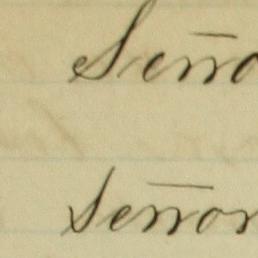 Seño
señor